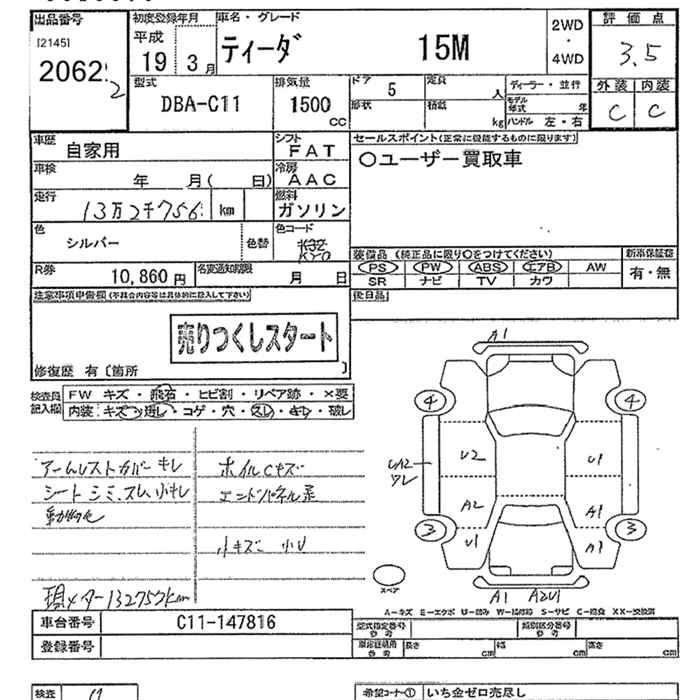 出品番号
[2145]
2062
2
初度登録年月
平成
19 3月
車名・グレード
ティーダ 15M
2WD
・
4WD
評価点
3.5
外装 内装
C C
型式
DBA-C11
排気量
1500
CC
ドア 5
形状
定員 人
積載 kg
ディーラー・並行
モデル年式 年
ハンドル 左・右
車歴
自家用
シフト
FAT
車検
年 月( 日)
冷房
AAC
走行
km
燃料
ガソリン
色
シルバー
色替
色コード
R券
10,860円
名変通知期限
月 日
セールスポイント(正常に機能するものに限ります)
〇ユーザー買取車
装備品 (純正品に限り〇をつけてください)
PS PW ABS エアB AW
SR ナビ TV カワ
新車保証書
有・無
後日品
注意事項申告欄(不具合内容等は具体的に記入して下さい)
売りつくしスタート
修復歴 有〔箇所 〕
検査員
記入欄
FW キズ・飛石・ヒビ割・リペア跡・×要
内装:キズ・汚し・コゲ・穴・スレ・キレ・破レ
アームレストカバーキレ
シートシミ、スレ、小キレ
ホイルCキズ
小キズ 小U
現メーター132757km
A1
4 4
U2 U1
A2 A1
U1 A1
3 3
スペア
A1 A2U1
A-キズ E-エクボ U-凹み W-補修跡 S-サビ C-腐食 XX-交換済
車台番号
C11-147816
登録番号
型式指定番号
参考
類別区分番号
参考
車庫証明用
参考
長さ cm
幅 cm
高さ cm
検査
希望コーナー① いち金ゼロ売尽し